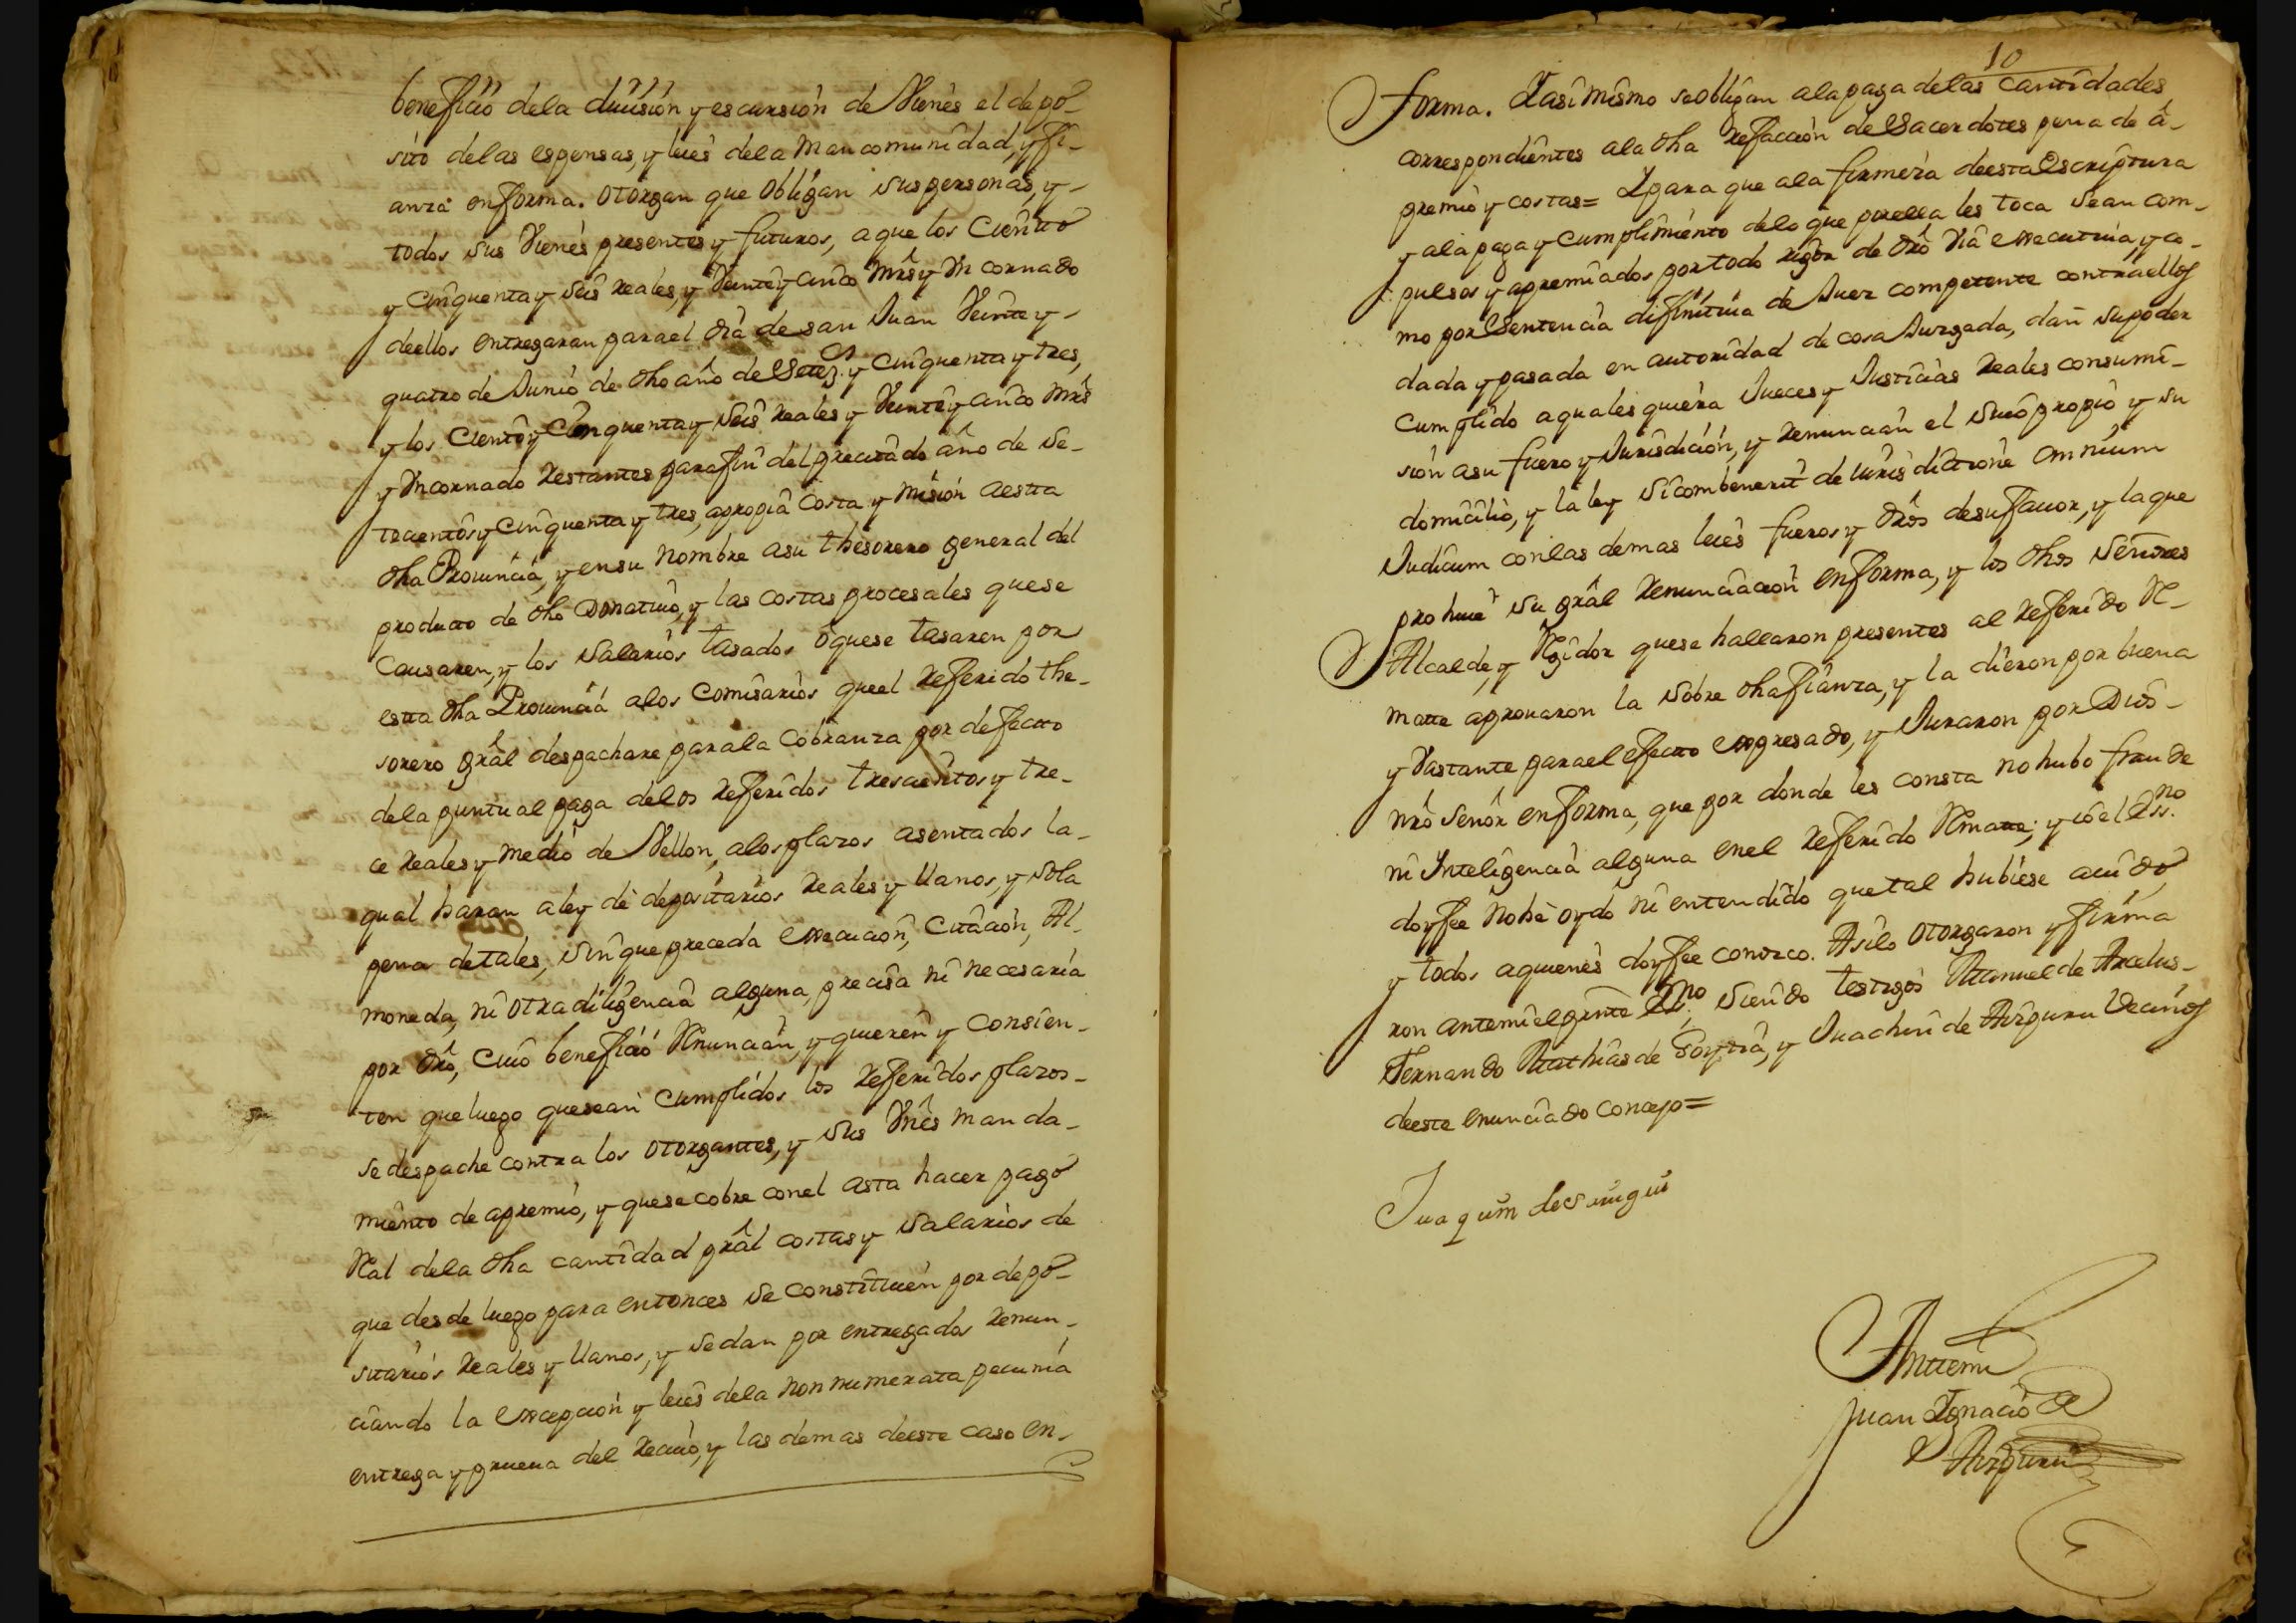 beneficio dela diuision y escursion de Vienes el depo-
sito delas espensas, y leies dela Mancomunidad, y fi-
anza en forma. otorgan que obligan sus personas, y
todos sus Vienes presentes y futuros, a que los Ciento
y Cinquenta y seis Reales, y Veinte y cinco Mrs y Un cornado
deellos entregaran para el dia de san Juan Veinte y
quatro de Junio de dho año de Setez.os y Cinquenta y tres,
y los Ciento y Cinquenta y seis Reales y Veinte y cinco Mrs
y Un cornado Restantes para fin del precitado año de Se-
tecientos y Cinquenta y tres, apropia Costa y Mision aesta
dha Prouincia, y en su Nombre a su thesorero general del
producto de dho Donatiuo, y las costas procesales quese
Causaren, y los Salarios tasados o quese tasaren por
esta dha Prouincia alos Comisarios queel Referido the-
sorero gràl despachare parala Cobranza por defecto
dela puntual paga delos Referidos trescientos y tre-
ce Reales y Medio de Vellon, alos plazos asentados la-
qual haran aley de depositarios Reales y llanos, y sola
pena detales, sin que preceda execucion, Citacion, Al-
moneda, ni otra diligencia alguna, precisa ni necesaria
por dro, cuio beneficio Renuncian, y quieren y Consien-
ten que luego quesean Cumplidos los Referidos plazos
se despache contra los otorgantes, y sus Vnes manda-
miento de apremio, y quese cobre conel asta hacer pago
Real dela dha cantidad prâl costas y Salarios de
que desde luego para entonces se constituien por depo-
sitarios Reales y llanos, y sedan por entregados Renun-
ciando la excepcion y leies dela Non numerata pecunia
entrega y prueua del Reciuo, y las demas deeste caso en
10
forma. Y asi mismo se obligan ala paga delas Cantidades
correspondientes ala dha Refaccion de Sacerdotes pena de a-
premio y costas= Y para que ala firmeza deesta Escriptura
y ala paga y Cumplimiento delo que porella les toca Sean com-
pulsos y apremiados por todo rigor de dro Via executiua, y co-
mo por Sentencia difinitiua de Juez competente contraellos
dada y pasada en autoridad de cosa Juzgada, dan su poder
Cumplido a quales quiera Jueces y Justicias Reales consumi-
sion a su fuero y Jurisdicion, y Renuncian el Suio propio y su
domicilio, y la ley Sicombenerit de iurisdictione omnium
Judicum con las demas leies fueros y dros desu fauor, y la que
prohiue su gràl Renunciacion en forma, y los dhos Señores
Alcalde, y Regidor quese hallaron presentes al Referido Re-
mate aprouaron la sobre dha fianza, y la dieron por buena
y Vastante para el efecto expresado, y Juraron por Dios
nro Señor en forma, que por donde les consta no hubo fraude
ni Inteligencia alguna enel Referido Remate; y io el Ss.no
doy fee No he oydo ni entendido que tal hubiese auido,
y todos aquienes doy fee conozco. Asi lo otorgaron y firma
ron antemi el presnte Ss.no siendo testigos Manuel de Arcelus
Fernando Mathias de Goytia, y Juachin de Aizpuru Vecinos
deeste enunciado Concejo=
Juaquin de
Anttemi
Juan Ignacio de
Aizpuru